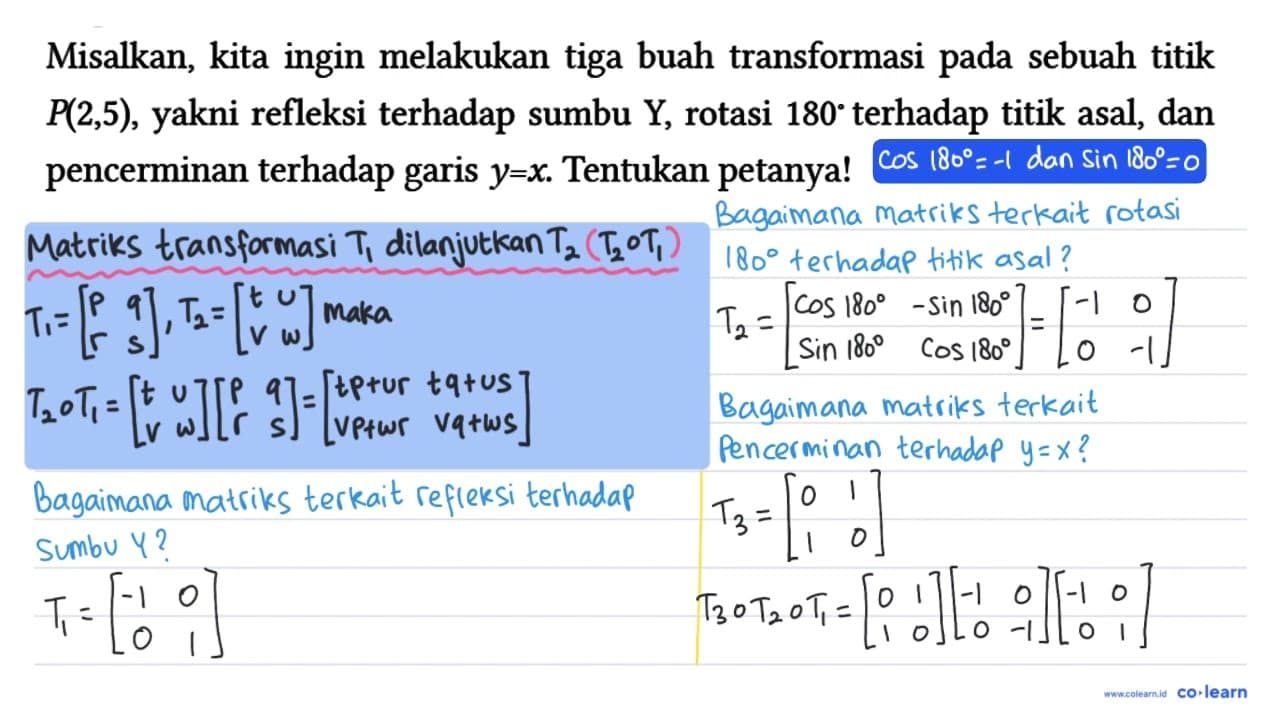 Misalkan, kita ingin melakukan tiga buah transformasi pada sebuah titik
P(2,5), yakni refleksi terhadap sumbu Y, rotasi 180° terhadap titik asal, dan
pencerminan terhadap garis y=x. Tentukan petanya!
cos 180° = -1 dan sin 180° = 0
Matriks transformasi T₁ dilanjutkan T₂ (T₂ o T₁)
T₁ = [p q; r s], T₂ = [t u; v w] maka
T₂ o T₁ = [t u; v w][p q; r s] = [tp+ur tq+us; vp+wr vq+ws]
Bagaimana matriks terkait refleksi terhadap
sumbu Y?
T₁ = [-1 0; 0 1]
Bagaimana matriks terkait rotasi
180° terhadap titik asal?
T₂ = [cos 180° -sin 180°; sin 180° cos 180°] = [-1 0; 0 -1]
Bagaimana matriks terkait
Pencerminan terhadap y = x?
T₃ = [0 1; 1 0]
T₃ o T₂ o T₁ = [0 1; 1 0][-1 0; 0 -1][-1 0; 0 1]
www.colearn.id co·learn